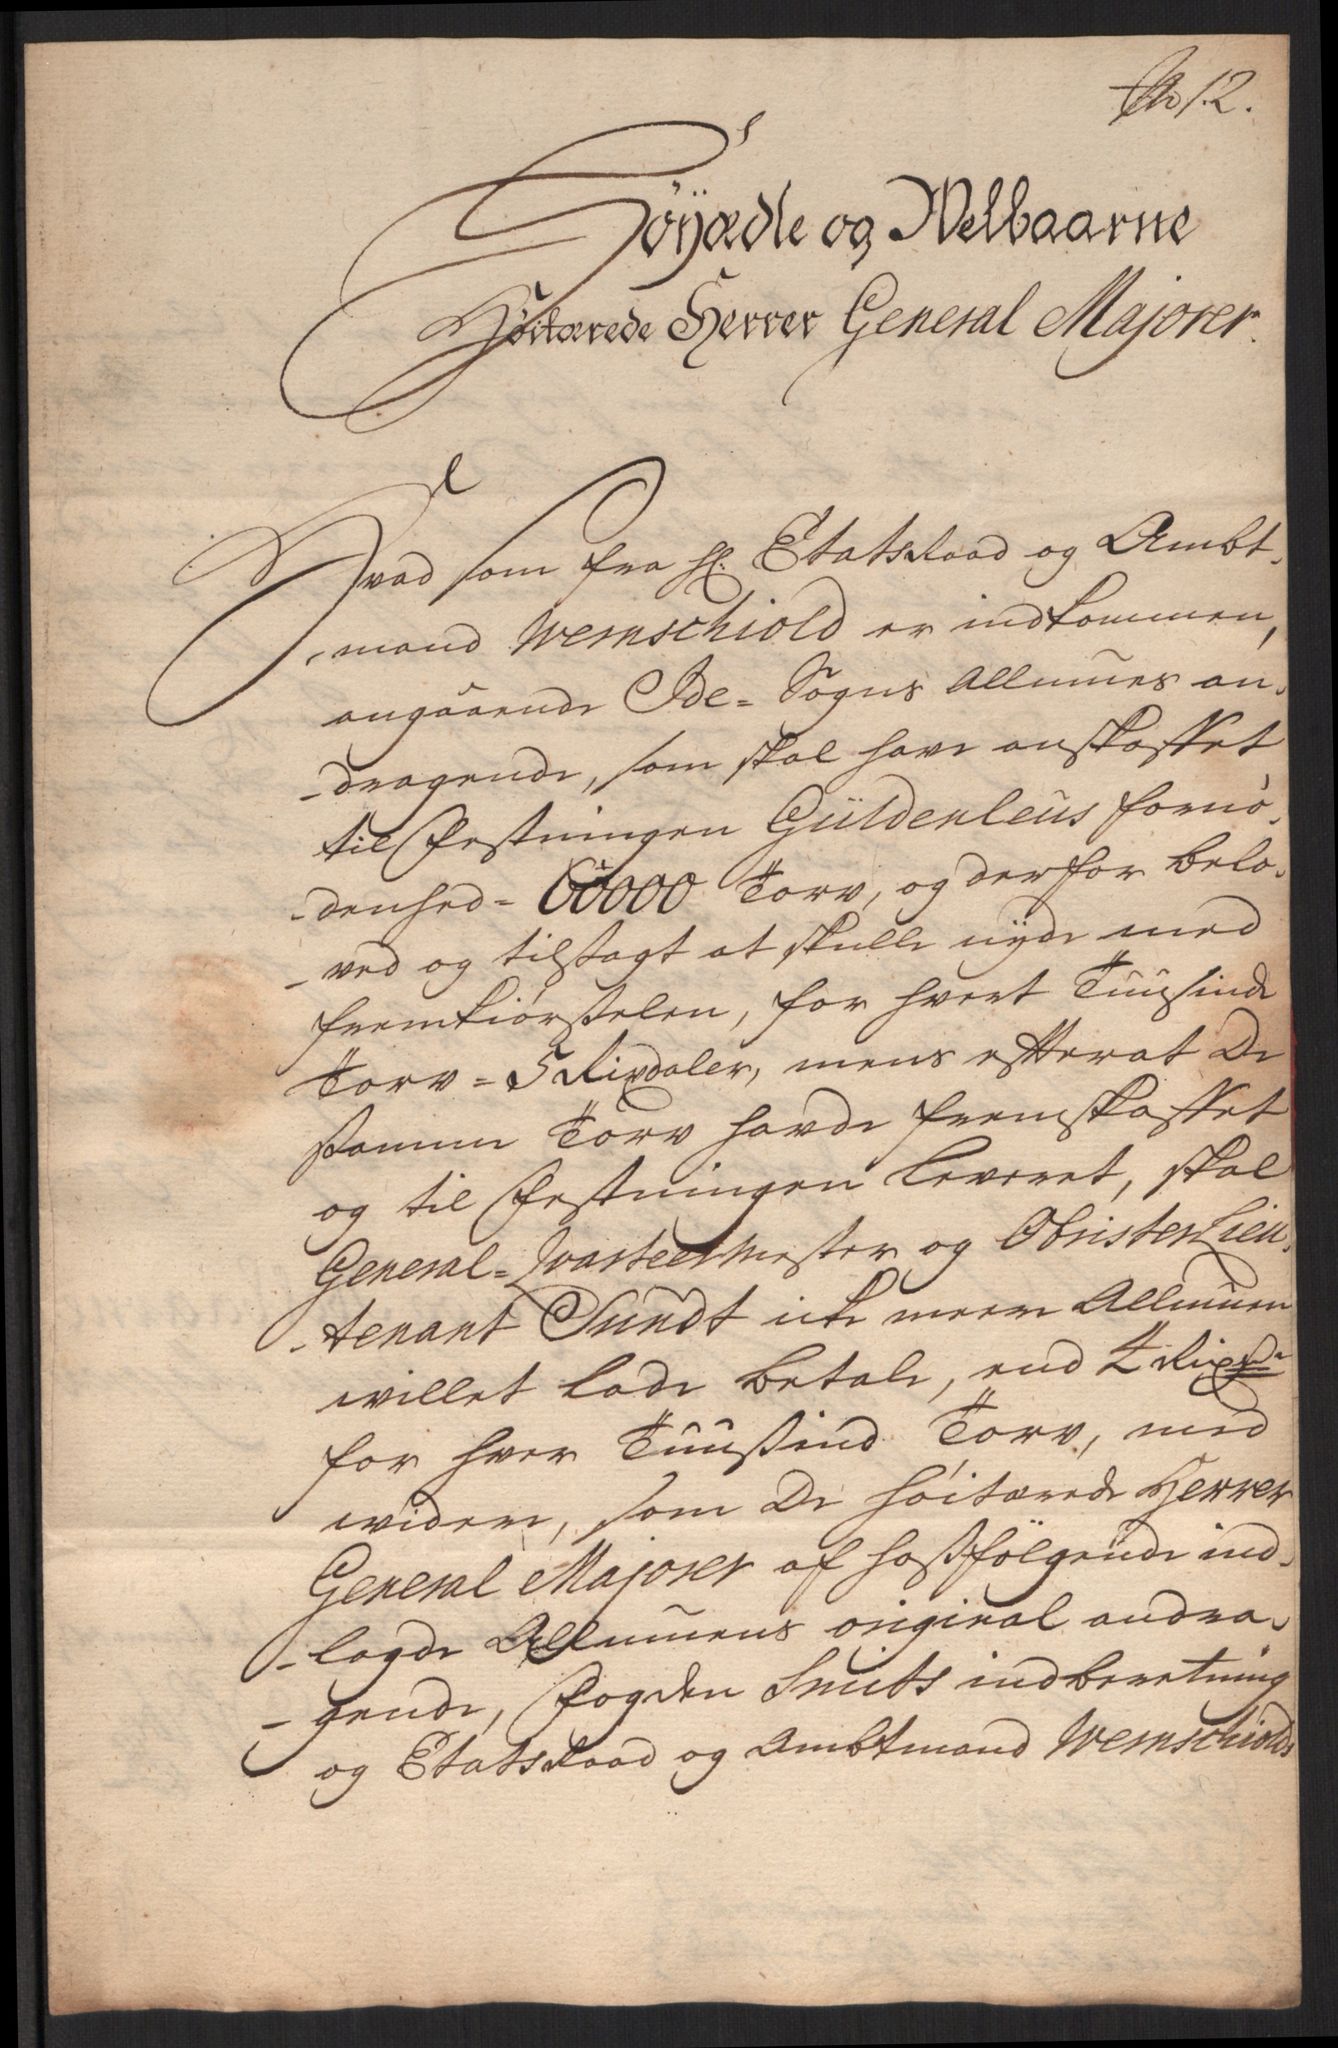 No 12.
Höÿædle og Welbaarne
Höitærede Herrer General Majorer.
Hvad som fra Hr. EtatsRaad og Ambt-
-mand Wernschiold er indkommen,
angaaende Ide= Sogns Allmues an-
-dragende, som skal have anskaffet
til Festningen Güldenleus fornö-
-denhed = 60000 Torv, og derfor belo-
-ved og tilsagt at skulle nÿde med
fremkiörselen, for hvert Tuusinde
Torv = 5 Rixdaler, mens efterat De
samme Torv havde fremskaffet
og til Festningen leveret, skal
General=Qvarteermester og ObristerLieu-
-tenant Sundt icke meere Allmuen
willet lade betale, end 4 Rixdr
for hver Tuusind Torv, med
widere, som De höitærede Herrer
General Majorer af hosfölgende ind-
-lagde Allmuens original andra-
-gende, Fogden Smits indberetning
og EtatsRaad og Ambtmand Wernschiolds